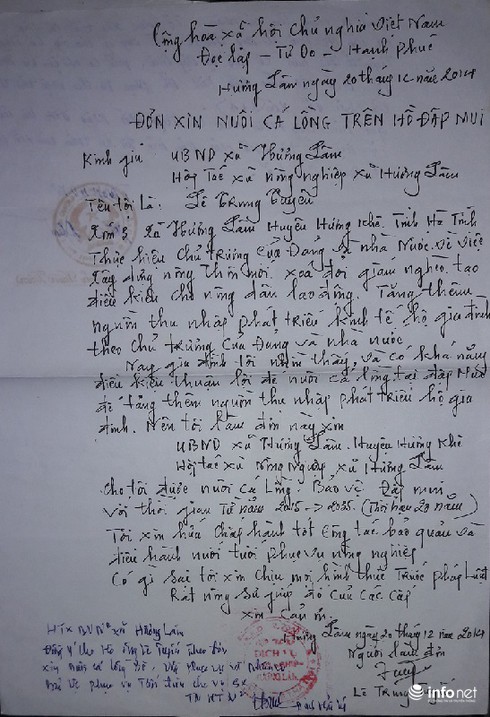 Cộng hòa xã hội Chủ nghĩa Việt Nam
Độc lập - Tự Do - Hạnh phúc
Hương Lâm ngày 20 tháng 12 năm 2014
ĐƠN XIN NUÔI CÁ LỒNG TRÊN HỒ ĐẬP MUI
Kính gửi UBND xã Hương Lâm
Hợp Tác xã nông nghiệp xã Hương Lâm
Tên tôi là: Lê Trung Tuyền
Xóm 5 Xã Hương Lâm Huyện Hương Khê. Tỉnh Hà Tĩnh
Thực hiện Chủ trương của Đảng và nhà Nước. Về việc
xây dựng nông thôn mới. xoá đói giảm nghèo. tạo
điều kiện cho nông dân lao động. Tăng thêm
nguồn thu nhập phát triển kinh tế hộ gia đình
theo Chủ trương Của Đảng và nhà nước
Nay gia đình tôi nhận thấy. và có khả năng
điều kiện thuận lợi để nuôi cá lồng. tại đập Mui
để tăng thêm nguồn thu nhập phát triển hộ gia
đình. Nên tôi làm đơn này xin
UBND xã Hương Lâm. Huyện Hương Khê
Hợp tác xã Nông Nghiệp xã Hương Lâm
Cho tôi được nuôi cá Lồng. Bảo vệ Đập mui
Với thời gian Từ năm 2015 -> 2035. (Thời hạn 20 năm)
Tôi xin hứa Chấp hành tốt Công tác bảo quản và
điều hành nước tưới phục vụ nông nghiệp
Có gì sai tôi xin Chịu mọi hình thức Trước pháp Luật
Rất mong sự giúp đỡ Của Các Cấp
Xin Cảm ơn.
Hương Lâm ngày 20 tháng 12 năm 2014
Người làm đơn
Lê Trung Tuyền
HTX DVNN xã Hương Lâm
Đồng ý cho Hộ ông Lê Tuyền theo đơn
xin nuôi cá lồng
DỊCH VỤ
infonet